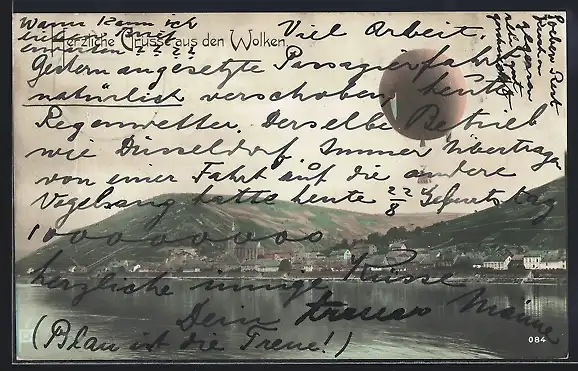 Wann kann ich
lieben Brief
erwarten ? ? ? ?
Herzliche Grüsse aus den Wolken
Viel Arbeit.
Gestern angesetzte Passagierfahrt
natürlich verschoben, heute
Regenwetter. Derselbe Betrieb
wie Düsseldorf. Immer Übertragen
von einer Fahrt auf die andere
Vogelsang hatte heute 22/8 Geburtstag
1000000000
herzliche innige Küsse
Dein treuer Männe
(Blau ist die Treue!)
084